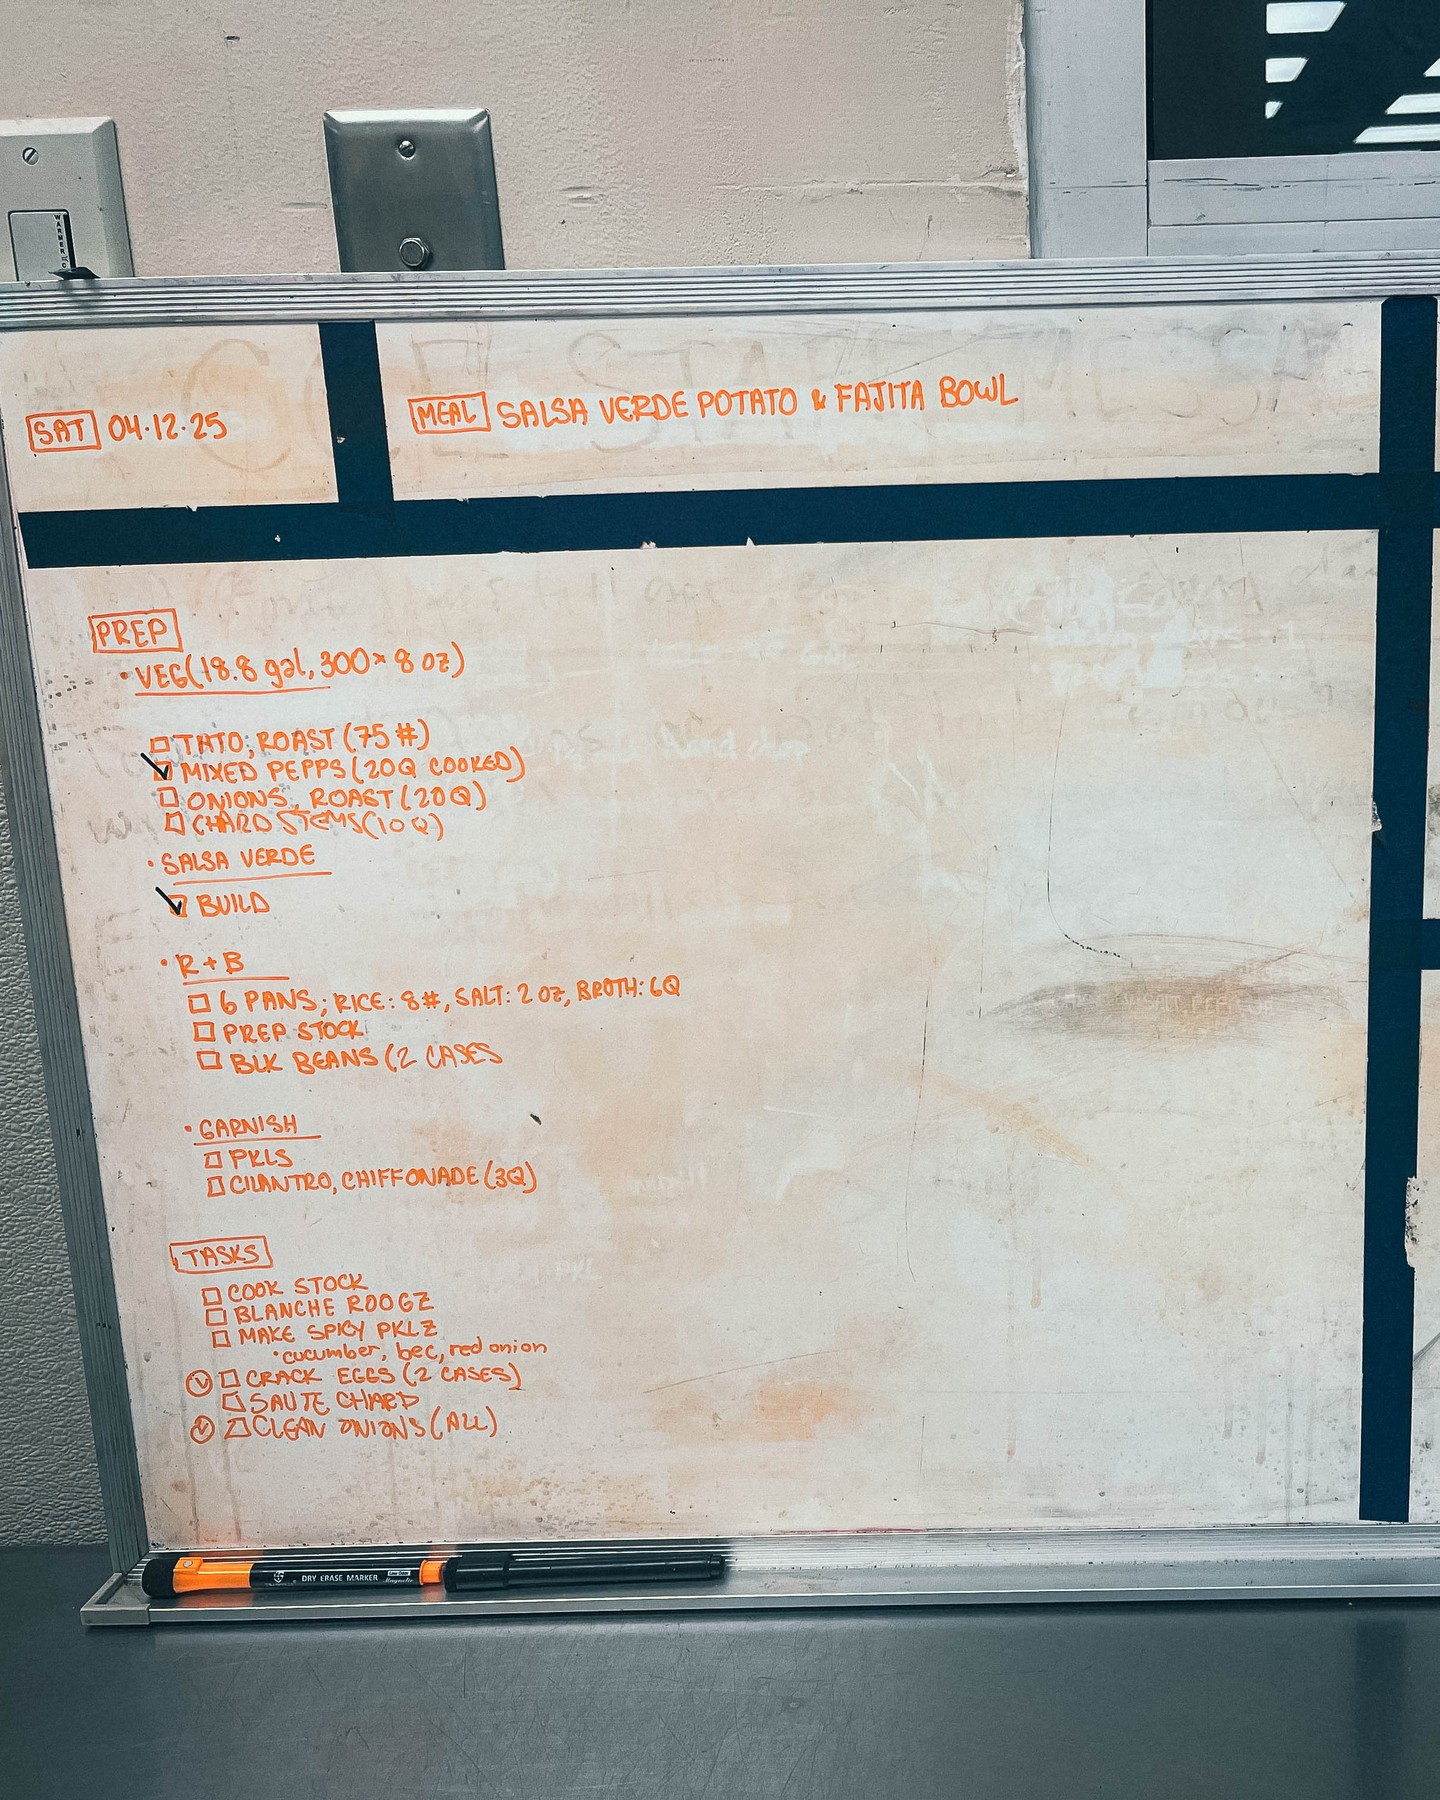 WARMER
SAT 04.12.25
MEAL SALSA VERDE POTATO & FAJITA BOWL
PREP
• VEG (18.8 gal, 300 × 8 oz)
TATO, ROAST (75 #)
MIXED PEPPS (20Q COOKED)
ONIONS, ROAST (20Q)
CHARD STEMS (10Q)
• SALSA VERDE
BUILD
• R + B
6 PANS; RICE: 8#, SALT: 2 OZ, BROTH: 6Q
PREP STOCK
BLK BEANS (2 CASES
• GARNISH
PKLS
CILANTRO, CHIFFONADE (3Q)
TASKS
COOK STOCK
BLANCHE ROOGZ
MAKE SPICY PKLZ
• cucumber, bec, red onion
V CRACK EGGS (2 CASES)
SAUTE CHARD
V CLEAN ONIONS (ALL)
DRY ERASE MARKER
Magnetic